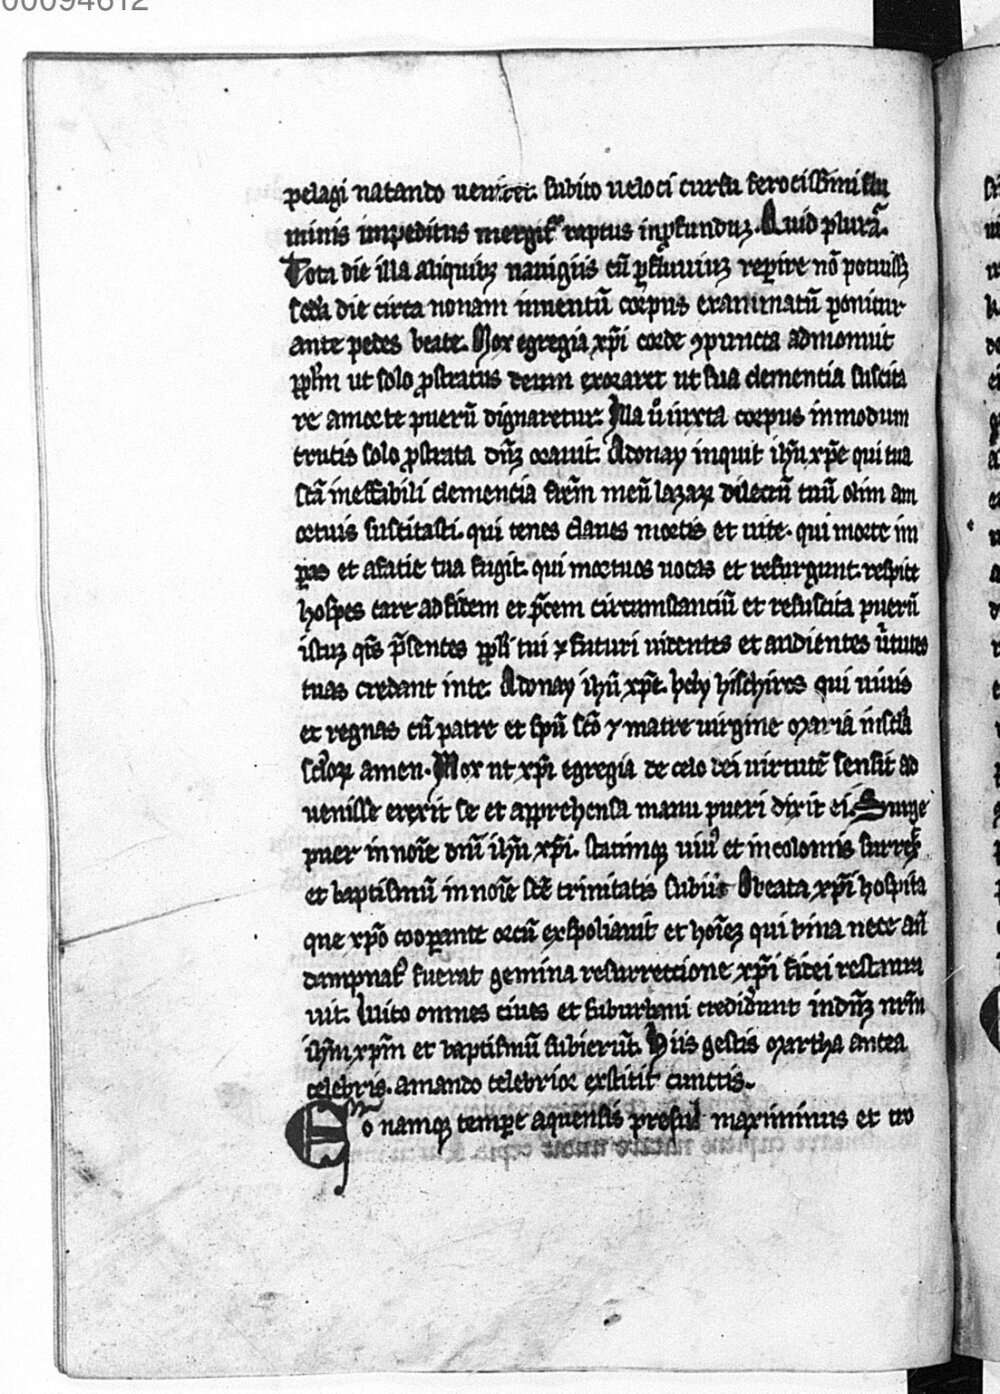 00094612
pelagi natando ueniret. subito ueloci cursu ferocissimi flu
minis impeditus mergitᷣ raptus inꝓfunduꝫ. Quid plurā.
Tota die illa aliquibꝫ nauigiis cū ꝑ fluuiuꝫ reꝑire nō potuissꝫ
scd̄a die circa nonam inuentū corpus exanimatū ponitur
ante pedes beate. Mox egregia xp̄i corde ꝯpuncta admonuit
ppl̄m ut solo ꝓstratus deum exoraret ut sua clementia suscita
re a morte puerū dignaretur. Illa u̇ iuxta corpus in modum
crucis solo ꝓstrata dn̄ꝫ orauit. Adonay inquit ih̄u xp̄e qui tua
sc̄a ineffabili clementia fr̄em meū lazaꝝ dilectū tuū olim a m
ortuis suscitasti. qui tenes claues mortis et uite. qui morte im
ꝑas et a facie tua fugit. qui mortuos uocas et resurgunt. respice
hospes care ad fidem et p̄cem circumstanciū et resuscita puerū
istuꝫ qͥs p̄sentes ppl̄i tui ⁊ futuri uidentes et audientes ũtutes
tuas credant in te. Adonay ih̄u xp̄e. hely hischiros qui uiuis
et regnas cū patre et sp̄u sc̄o ⁊ matre uirgine maria in scl̄a
scl̄oꝝ amen. Mox ut xp̄i egregia de celo dei uirtutē sensit ad
uenisse erexit se et apprehensa manu pueri dixit ei. Surge
puer in noīe dn̄i ih̄u xp̄i. statimqꝫ uiuꝰ et incolomis surrex̄
et baptismū in noīe sc̄e trinitatis subiit. O beata xp̄i hospita
que xp̄o cooꝑante orcū exspoliauit et hoīeꝫ qui bina nece añ
dampnatꝰ fuerat gemina resurrectione xp̄i fidei restaura
uit. Uiso omnes ciues et suburbani crediderunt in dn̄ꝫ nr̄m
ih̄m xp̄m et baptismū subierūt. Hiis gestis martha antea
celebris. amando celebrior exstitit cunctis.
Eo namqꝫ temꝑe aquensis presul maximinus et tro